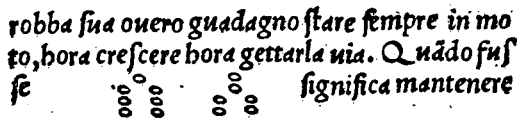 robba ſua ouero guadagno ſtare ſempre in mo
to, hora creſcere hora gettarla uia. Quãdo fuſ
ſe ſignifica mantenere